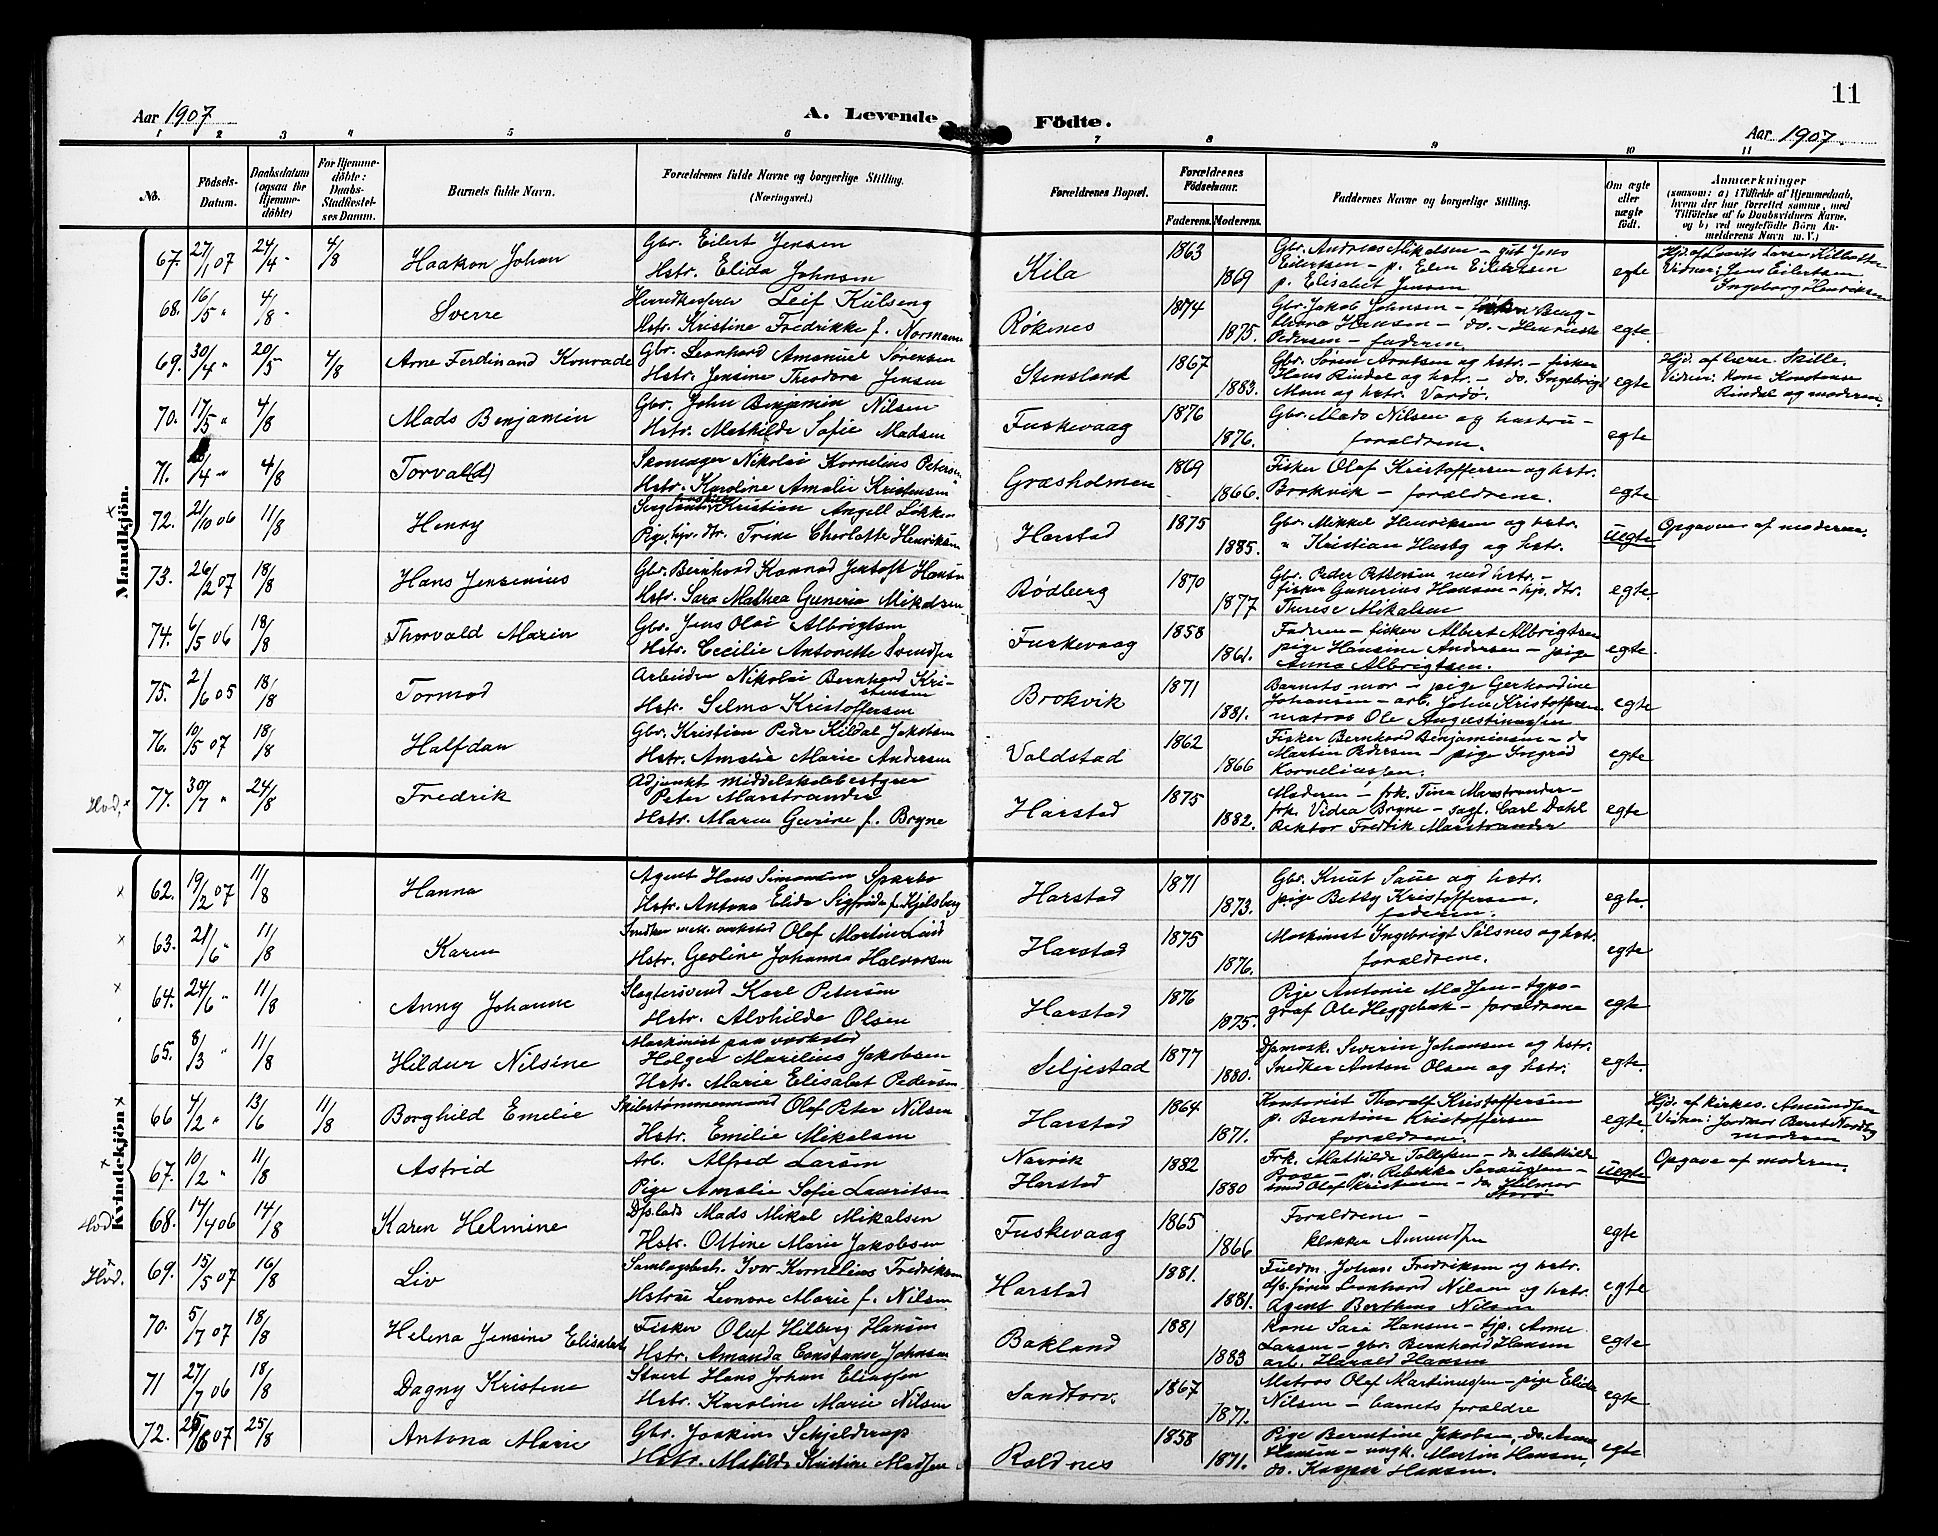 11
Aar 1907
A. Levende
Födte.
Aar 1907.
1 2 3 4 5 6 7 8 9 10 11
No.
Födsels-Datum.
Daabsdatum (ogsaa for Hjemmedöbte)
For Hjemmedöbte: Daabs-Stadfæstelses Datum.
Barnets fulde Navn.
Forældrenes fulde Navne og borgerlige Stilling. (Næringsvei.)
Forældrenes Bopæl.
Forældrenes Födselsaar.
Faderens. Moderens.
Faddernes Navne og borgerlige Stilling.
Om ægte eller uægte födt.
Anmærkninger
(saasom: a) i Tilfælde af Hjemmedaab, hvem der har forrettet samme, med Tilföielse af to Daabsvidners Navne, og b) ved uægtefödte Börn Anmelderens Navn m. V.)
Mandkjön.
67. 27/1 07 24/4 - 4/8 Haakon Johan
Gbr. Eilert Jensen
Hstr. Elida Johnsen
Kila 1863 1869
Gbr. Andreas Mikalsen - gut Jens
Eilertsen - p. Elen Eilertsen
p. Elisabet Jensen
egte
Hjd. af Laurits Larsen Kilbotten
Vidner: Jens Eilertsen
Ingeborg Henriksen
68. 16/5 " 4/8 - Sverre
Herredkasserer Leif Kulseng
Hstr. Kristine Fredrikke f. Normann
Rökenes 1874 1875.
Gbr. Jakob Johnsen -
Hansen - do. - Henriette
Pedersen - faderen.
egte.
69. 30/4 " 20/5 4/8 Arne Ferdinand Konrade
Gbr. Leonhard Amanuel Sörensen
Hstr. Jensine Theodora Jensen
Stensland 1867 1883.
Gbr. Sören Arntsen og hstr. - fisker
Hans Rindal og hstr. - do. Ingebrigt
og hstr. Vardö.
egte
Hjd. af lærer Skille.
Vidner: Kone Konstanse
Rindal og moderen.
70. 17/5 " 4/8 Mads Benjamin
Gbr. John Benjamin Nilsen
Hstr. Mathilde Sofie Madsen
Fuskevaag 1876 1876.
Gbr. Mads Nilsen og hustru -
forældrene.
egte
71. /4 " 4/8 Torval(d)
Skomager Nikolai Kornelius Petersen
Hstr. Karoline Amalie Kristensen
Græsholmen 1869 1866.
Fisker Olaf Kristoffersen og hstr.
Brokvik - forældrene.
egte
72. 21/10 06 11/8 Henry
Kristian Angell Lökken
Pige, hjv. dtr. Trine Charlotte Henriksen
Harstad 1875 1885.
Gbr. Mikkel Henriksen og hstr.
" Kristian Husby og hstr.
uegte
Opgaven af moderen.
73. 26/2 07 18/8 Hans Jensenius
Gbr. Bernhard Konrad Jentoft Hansen
Hstr. Sara Mathea Guneria Mikalsen
Rödberg 1870 1877
Gbr. Peder Pettersen med hstr. -
fisker Gunerius Hansen - hjv. dtr.
Therese Mikalsen
egte.
74. 6/5 06 18/8 Thorvald Marin
Gbr. Jens Olai Albrigtsen
Hstr. Cecilie Antonette Svendsen
Fuskevaag 1858 1861.
Faderen - fisker Albert Albrigtsen
pige Hansine Andersen - pige
Anna Albrigtsen.
egte.
75. 2/6 05 18/8 Tormod
Arbeider Nikolai Bernhard Kri-
stensen
Hstr. Selma Kristoffersen
Brokvik 1871 1881.
Barnets mor - pige Gerhardine
Johansen - arb. John Kristoffersen
matros Ole Augustinussen
egte
76. 10/5 07 18/8 Halfdan
Gbr. Kristian Peder Kildal Jakobsen
Hstr. Amalie Marie Andersen
Valdstad 1862 1866
Fisker Bernhard Benjaminsen - do
Martin Pedersen - pige Ingrid
Korneliussen.
egte
Hvd. 77. 30/7 " 24/8 Fredrik
Adjunkt middelskolebestyrer
Peter Marstrander
Hstr. Maren Gurine f. Bryne
Harstad 1875 1882.
Moderen - frk. Tina Marstrander -
frk. Videa Bryne - sagf. Carl Dahl
Rektor Fredrik Marstrander
egte
Kvindekjön
62. 19/2 07 11/8 Hanna
Agent Hans Simonsen Sparbo
Hstr. Antona Elida Sigfrida f. Kjelsberg
Harstad 1871 1873.
Gbr. Knut Saue og hstr.
pige Betsy Kristoffersen.
faderen.
egte.
63. 21/6 " 11/8 Karen
Snedker mek. verksted Olaf Martin Lind
Hstr. Geoline Johanna Halvorsen
Harstad 1875 1876.
Maskinist Ingebrigt Sölsnes og hstr.
forældrene.
egte
64. 24/6 " 11/8 Anny Johanne
Slagtersvend Karl Petersen
Hstr. Alvhilda Olsen
Harstad 1876 1875.
Pige Antonie Madsen - typo-
graf Ole Heggebak - forældrene
egte
65. 8/3 " 11/8 Hildur Nilsine
Maskinist paa verksted
Holger Marelius Jakobsen
Hstr. Marie Elisabet Pedersen
Seljestad 1877 1880.
Dpmask. Severin Johansen og hstr.
Snedker Anton Olsen og hstr.
egte.
66 4/2 " 13/6 11/8 Borghild Emelie
Skibstömmermand Olaf Peter Nilsen
Hstr. Emilie Mikalsen
Harstad 1864 1871.
Kontorist Tharalf Kristoffersen
p. Berntine Kristoffersen
forældrene.
egte.
Hjd. af kirkes. Amundsen
Vidner: Jordmor Beret Nordby
moderen
67. 10/2 " 11/8 Astrid
Arb. Alfred Larsen
Pige Amalie Sofie Lauritsen
Narvik
Harstad 1882 1880
Frk. Mathilde Tollefsen - do. Mathilde
p. Rebekka -
smed Olaf Kristensen - do. Hilmar
Storö
uegte
Opgave af moderen.
Hvd 68. 14/4 06 14/8 Karen Helmine
Mads Mikal Mikalsen
Hstr. Ottine Marie Jakobsen
Fuskevaag 1865 1866
Forældrene -
klokker Amundsen
egte
Hvd. 69. 15/5 07 16/8 Liv
Samlagsbest. Ivar Kornelius Fredriksen
Hstrue Leonore Marie f. Nilsen
Harstad 1881. 1881.
Fuldm. Johan Fredriksen og hstr.
dpförer Leonhard Nilsen og hstr.
Agent Berthens Nilsen
egte
70. 5/7 07 18/8 Helena Jensine Elisabeth
Fisker Oluf Hilberg Hansen
Hstr. Amanda Constanse Johnsen
Bakland 1881 1883
Kone Sara Hansen - tjp. Anne
Larsen - gbr. Bernhard Hansen
arb. Harald Hansen
egte
71 27/7 06 18/8 Dagny Kristine
Stuert Hans Johan Eliassen
Hstr. Karoline Marie Nilsen
Sandtorv. 1867 1871.
Matros Olaf Martinussen - pige Elida
Nilsen - barnets forældre
egte
72. 25/6 07 25/8 Antona Marie
Gbr. Joakim Schjelderup
Hstr. Matilde Kristine Madsen
Roldnes 1858 1871.
Pige Berntine Jakobsen, do. Anna
Hansen - ungk. Martin Hansen,
do. Kasper Hansen.
egte